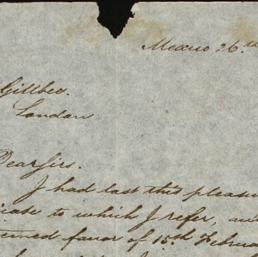 Mexico 26th
Gillbee.
London
Dear Sirs.
I had last this pleasu
icate to which I refer, an
eemed favor of 15th Februa